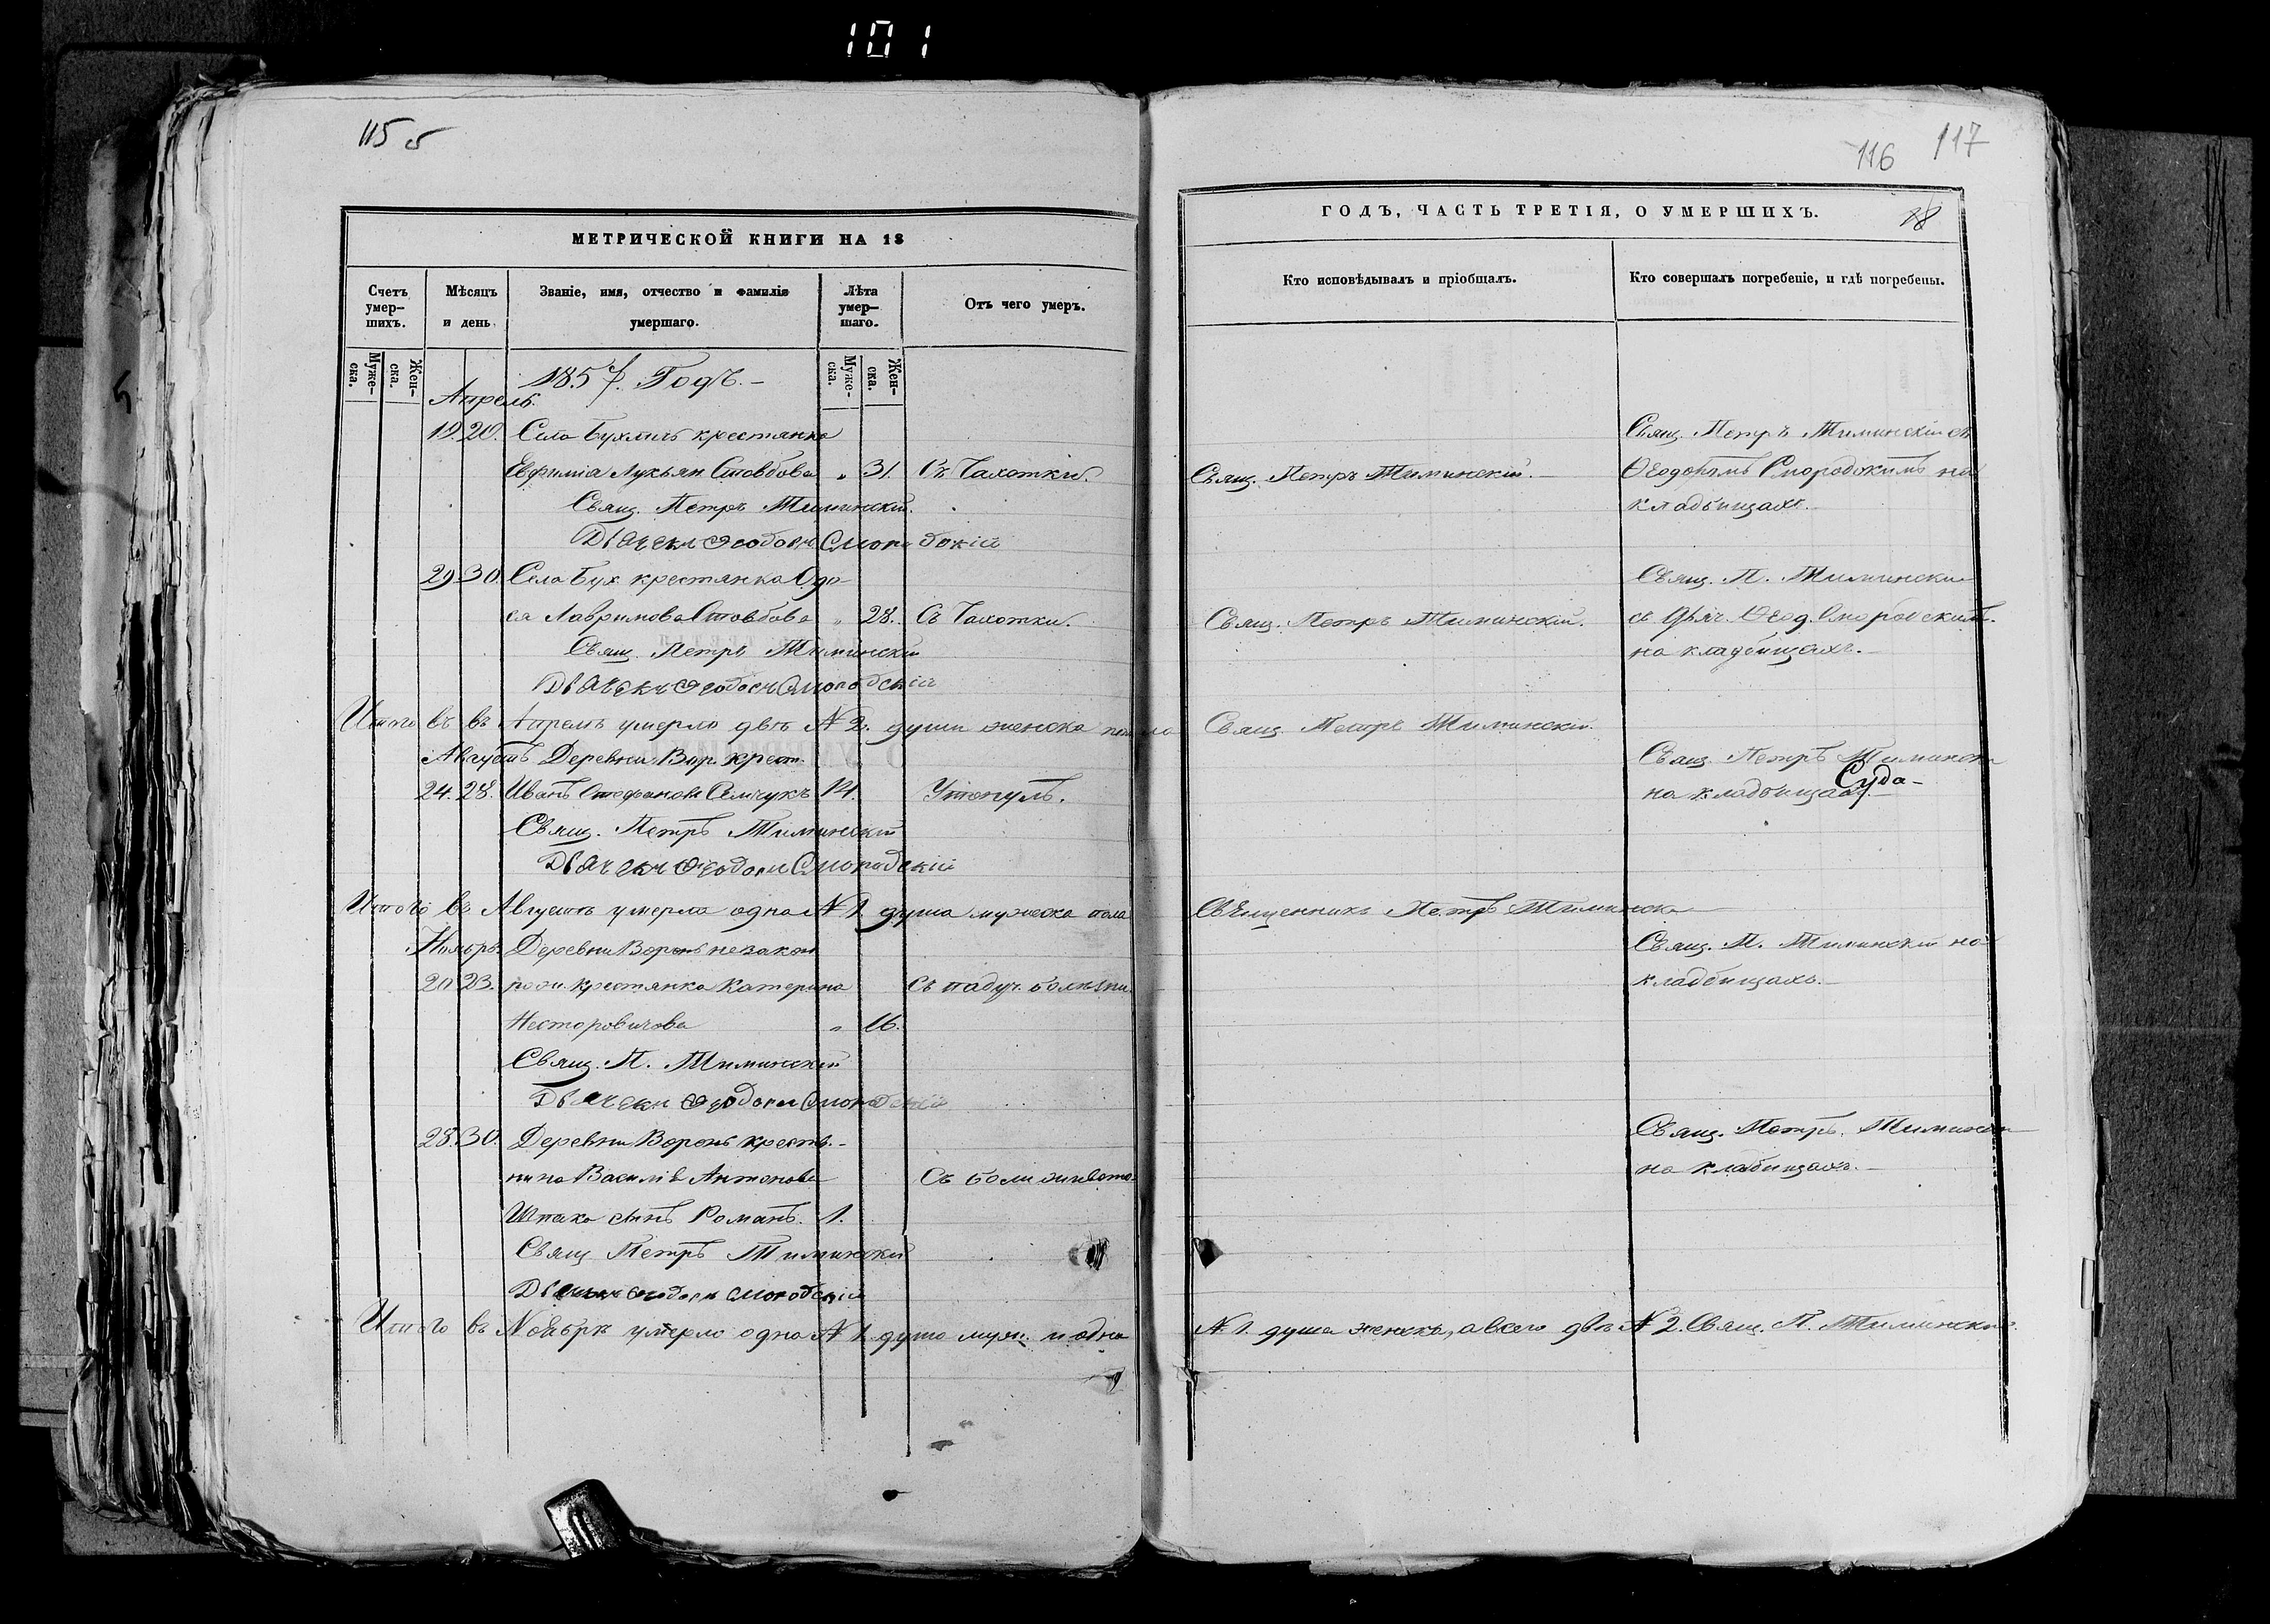 101
115 об
МЕТРИЧЕСКОЙ КНИГИ НА 18
Счетъ умер-шихъ.
Мѣсяцъ и день.
Званіе, имя, отчество и фамилія умершаго.
Лѣта умер-шаго.
Отъ чего умеръ.
Муже-ска.
Жен-ска.
Муже-ска.
Жен-ска.
1857. Годъ.
Апрель.
19. 20. Села крестянка
Евфимія Лукьян Стовбова „ 31. Съ Чахотки.
Свящ. Петръ Тиминскій.
Дьячекъ Ѳеодоръ
29. 30. Села Бух. крестянка
Стовбова „ 28. Съ Чахотки.
Свящ. Петръ Тиминскій
Дьячекъ Ѳеодоръ
Итого въ въ Апрелѣ умерло двѣ № 2. души женска пола
Августъ Деревни Вор. крест.
24. 28. Иванъ Стефановъ Семчукъ 14. Утонулъ.
Свящ. Петръ Тиминскій
Дьячекъ Ѳеодоръ
Итого въ Августѣ умерла одна № 1 душа мужеска пола
Ноябрь. Деревни Воронъ незакон
20 23. крестянка Катерина Съ падуч. болѣзни.
Несторовичова „ 16.
Свящ. П. Тиминскій
Дьячекъ Ѳеодоръ
28. 30. Деревни Воронъ кресть.-
нина Василія Антонова Съ боли живота.
Шпака сынъ Романъ. 1.
Свящ Петръ Тиминскій
Дьячекъ Ѳеодоръ
Итого въ Ноябрѣ умерло одна № 1. душа муж. и одна
116 117
ГОДЪ, ЧАСТЬ ТРЕТІЯ, О УМЕРШИХЪ.
Кто исповѣдывалъ и пріобщалъ.
Кто совершалъ погребеніе, и гдѣ погребены.
Свящ. Петръ Тиминскій съ
Свящ. Петръ Тиминскій. Ѳеодоромъ на
кладбищахъ.
Свящ. П. Тиминскій
Свящ. Петръ Тиминскій. съ дьяч. Ѳеод.
на кладбищахъ.
Свящ Петръ Тиминскій.
Свящ Петръ Тиминскій
на кладбищахъ. Суда-
Священникъ Петръ Тиминскій
Свящ. П. Тиминскій на
кладбищахъ.
Свящ. Петръ Тиминскій
на кладбищахъ.
№ 1. душа женска, а всего двѣ № 2. Свящ. П. Тиминскій.